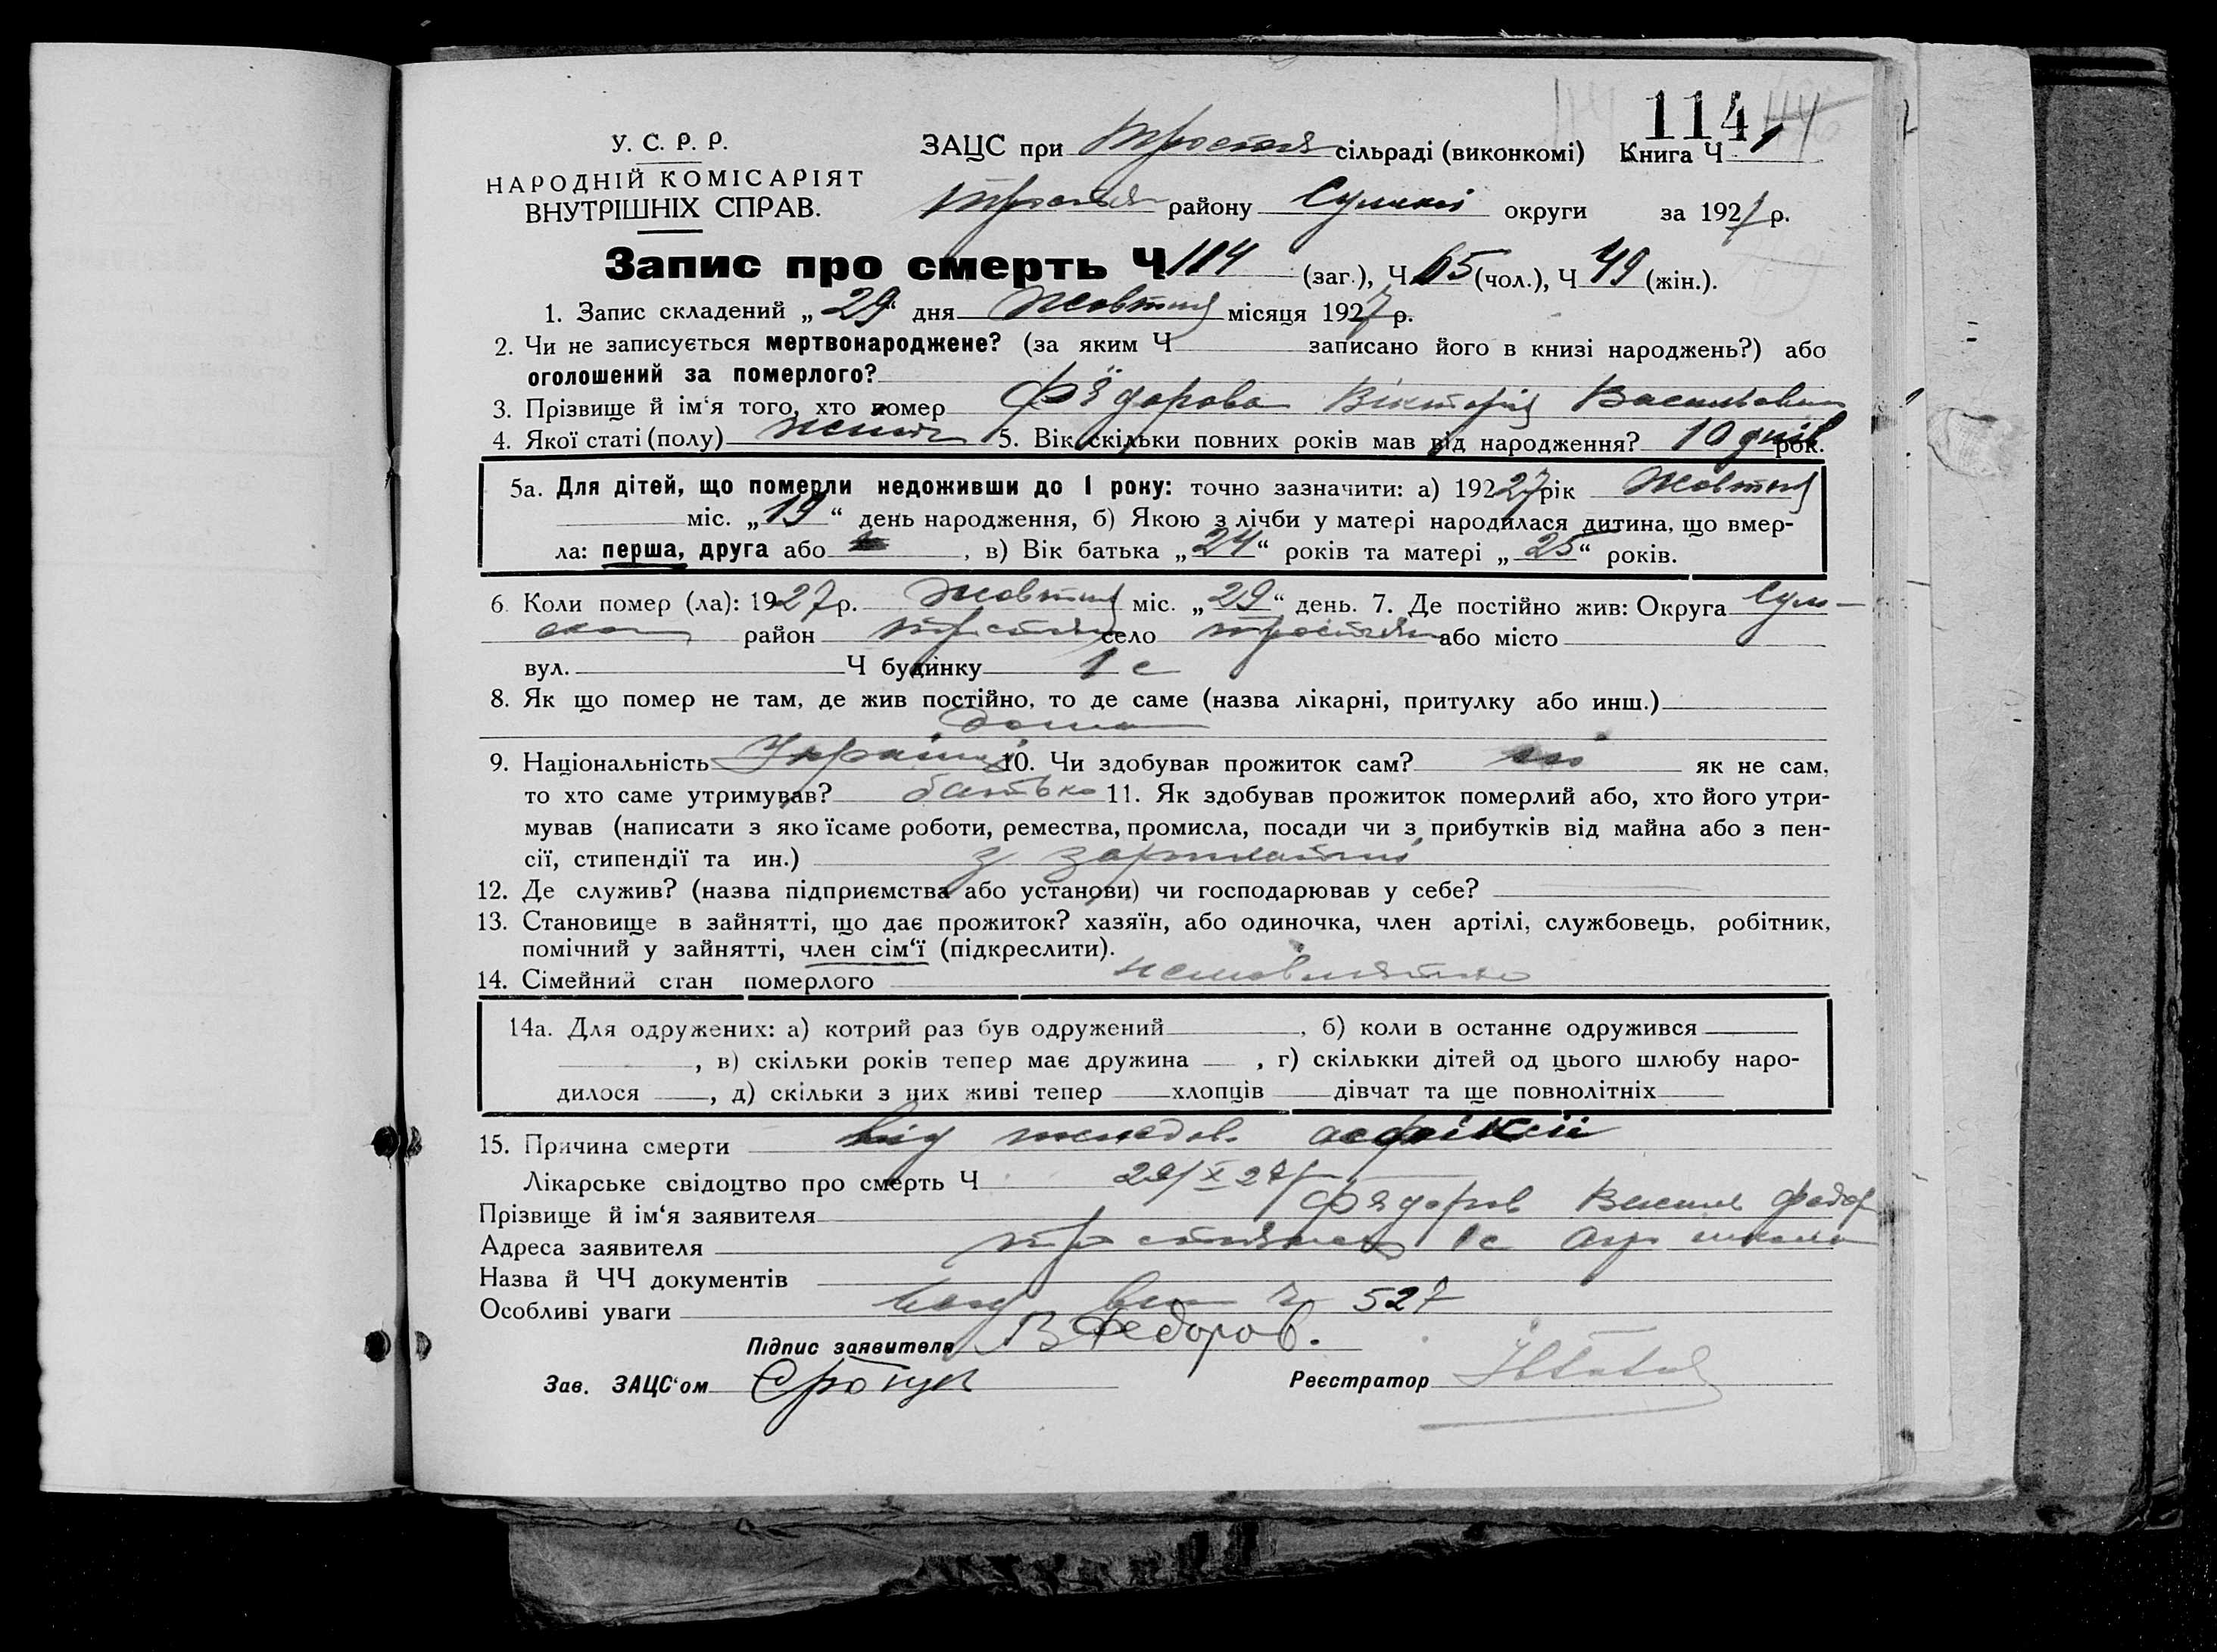 114
У. С. Р. Р.
НАРОДНІЙ КОМІСАРІЯТ
ВНУТРІШНІХ СПРАВ.
ЗАЦС при Тростян сільраді (виконкомі) Книга Ч 1
Тростян району Сумської округи за 1927 р.
Запис про смерть Ч 114 (заг.), Ч 65 (чол.), Ч 49 (жін.).
1. Запис складений „29“ дня Жовтня місяця 1927 р.
2. Чи не записується мертвонароджене? (за яким Ч записано його в книзі народжень?) або
оголошений за померлого?
3. Прізвище й ім‘я того, хто помер Фёдорова Вікторія Василівна
4. Якої статі (полу) жіноч 5. Вік скільки повних років мав від народження? 10 днів рок.
5а. Для дітей, що померли недоживши до 1 року: точно зазначити: а) 19227 рік Жовтня
міс. „19“ день народження, б) Якою з лічби у матері народилася дитина, що вмер-
ла: перша, друга або , в) Вік батька „24“ років та матері „25“ років.
6. Коли помер (ла): 1927 р. Жовтня міс. „29“ день. 7. Де постійно жив: Округа Сум-
ська район Тростян село Тростян або місто
вул. Ч будинку 1 с
8. Як що помер не там, де жив постійно, то де саме (назва лікарні, притулку або инш.)
дома
9. Національність Україн 10. Чи здобував прожиток сам? ні як не сам,
то хто саме утримував? батько 11. Як здобував прожиток померлий або, хто його утри-
мував (написати з яко їсаме роботи, ремества, промисла, посади чи з прибутків від майна або з пен-
сії, стипендії та ин.) з зарплатні
12. Де служив? (назва підприємства або установи) чи господарював у себе?
13. Становище в зайнятті, що дає прожиток? хазяїн, або одиночка, член артілі, службовець, робітник,
помічний у зайнятті, член сім‘ї (підкреслити).
14. Сімейний стан померлого немовлятко
14а. Для одружених: а) котрий раз був одружений , б) коли в останнє одружився
, в) скільки років тепер має дружина , г) скількки дітей од цього шлюбу наро-
дилося , д) скільки з них живі тепер хлопців дівчат та ще повнолітніх
15. Причина смерти від асфіксії
Лікарське свідоцтво про смерть Ч 29/X 27 р
Прізвище й ім‘я заявителя Фёдоров Василь Федор
Адреса заявителя Тростянець 1 с школа
Назва й ЧЧ документів
Особливі уваги 527
Підпис заявителя В Федоров.
Зав. ЗАЦС‘ом Реєстратор